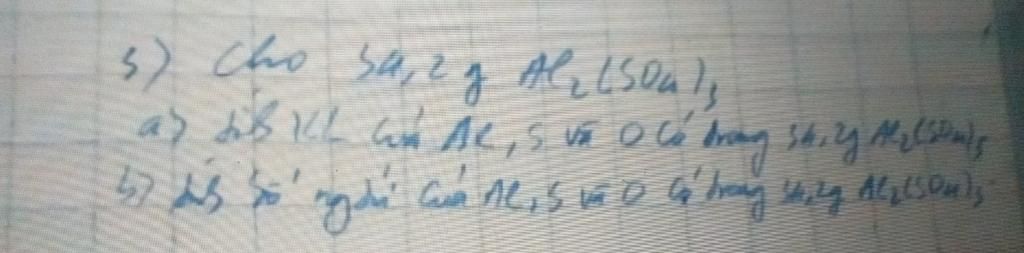 3) Cho 34,2g Al₂(SO₄)₃
a) tính KL của Al, S và O có trong 34,2g Al₂(SO₄)₃
b) tính số ngtử của Al, S và O có trong 34,2g Al₂(SO₄)₃